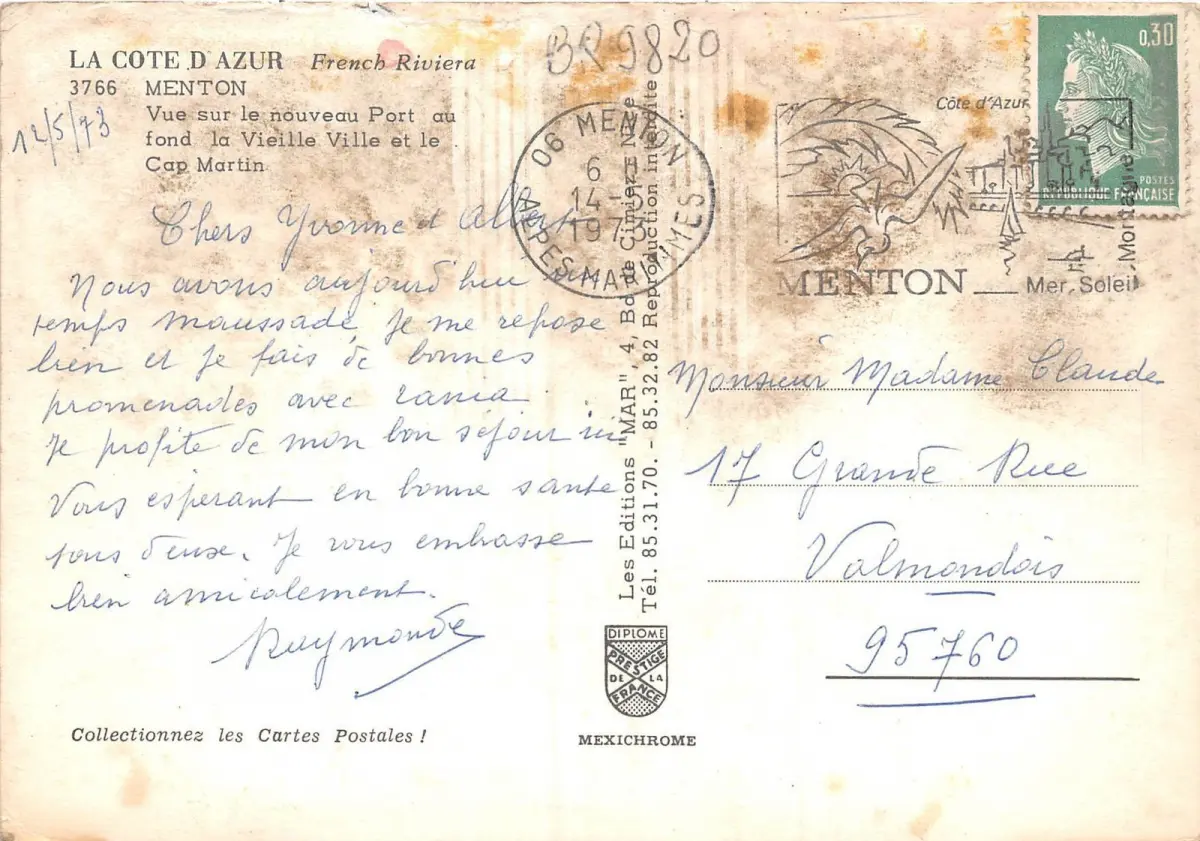 BP 9820
LA COTE D'AZUR French Riviera
3766 MENTON
Vue sur le nouveau Port au
fond la Vieille Ville et le
Cap Martin
12/5/73
Chers Yvonne et Albert
Nous avons aujourd'hui un
temps maussade, Je me repose
bien et je fais de bonnes
promenades avec Tania
Je profite de mon bon séjour ici
Vous esperant en bonne santé
tous deux. Je vous embrasse
bien amicalement.
Raymonde
Collectionnez les Cartes Postales !
Les Editions "MAR", 4, Bd de Cimiez - Nice
Tél. 85.31.70. - 85.32.82 Reproduction interdite
DIPLOME
PRESTIGE
DE LA
FRANCE
MEXICHROME
06 MENTON
6
14-5
1973
ALPES-MARITIMES
Côte d'Azur
MENTON
Mer, Soleil, Montagne
0,30
POSTES
REPUBLIQUE FRANÇAISE
Monsieur Madame Claude
17 Grande Rue
Valmondois
95760